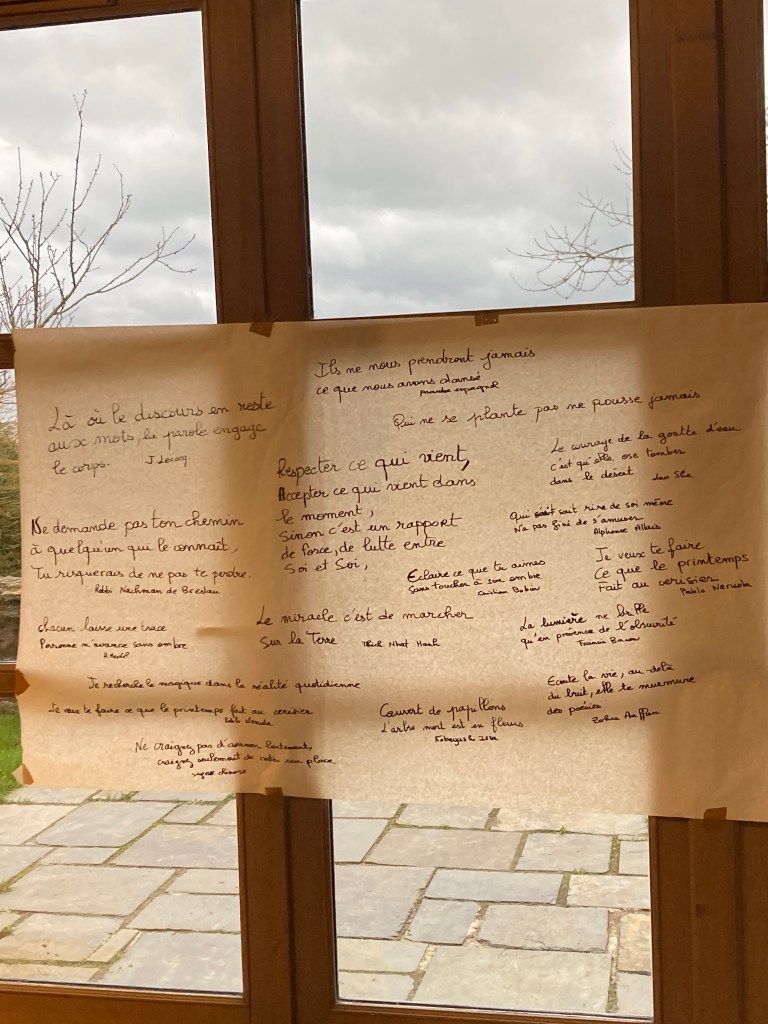 Ils ne nous prendront jamais
ce que nous avons dansé
proverbe espagnol
Qui ne se plante pas ne pousse jamais
Là où le discours en reste
aux mots, la parole engage
le corps. J. Lecoq
Respecter ce qui vient,
Accepter ce qui vient dans
le moment,
Sinon c'est un rapport
de force, de lutte entre
Soi et Soi,
Le courage de la goutte d'eau
c'est qu'elle ose tomber
dans le désert
Lao She
Qui sait rire de soi même
N'a pas fini de s'amuser
Alphonse Allais
Ne demande pas ton chemin
à quelqu'un qui le connaît,
Tu risquerais de ne pas te perdre.
Rabbi Nachman de Breslau
Eclaire ce que tu aimes
Sans toucher à son ombre
Christian Bobin
Je veux te faire
Ce que le printemps
Fait au cerisier
Pablo Neruda
chacun laisse une trace
Personne n'avance sans ombre
Le miracle c'est de marcher
Sur la Terre Thich Nhat Hanh
La lumière ne brille
qu'en présence de l'obscurité
Francis Bacon
Je recherche le magique dans la réalité quotidienne
Je veux te faire ce que le printemps fait au cerisier
Pablo Neruda
Couvert de papillons
L'arbre mort est en fleurs
Kobayashi Issa
Ecoute la vie, au-delà
du bruit, elle te murmure
des poésies
Ne craignez pas d'avancer lentement,
craignez seulement de rester sur place
sagesse chinoise